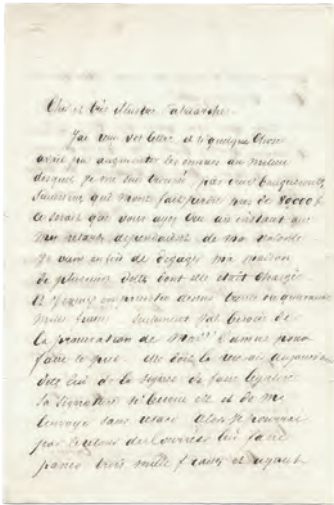 Cher et très Illustre Patriarche.
J'ai reçu vos lettres et si quelque chose
avait pu augmenter les ennuis au milieu
desquels je me suis trouvé, par une banqueroute
qui m'a fait perdre près de 80000 f
ce serait que vous ayez cru un instant que
mes retards dépendaient de ma volonté
Je viens enfin de dégager ma maison
de plusieurs dettes dont elle était chargée
trente ou quarante
mille francs. Seulement j'ai besoin de
la procuration de Dumas pour
faire le prêt. elle doit la recevoir aujourd'hui
de la signer de faire légaliser
sa signature si besoin est et de me
l'envoyer sans retard. Alors je pourrai
par le retour du courrier lui faire
passer trois mille francs et ayant